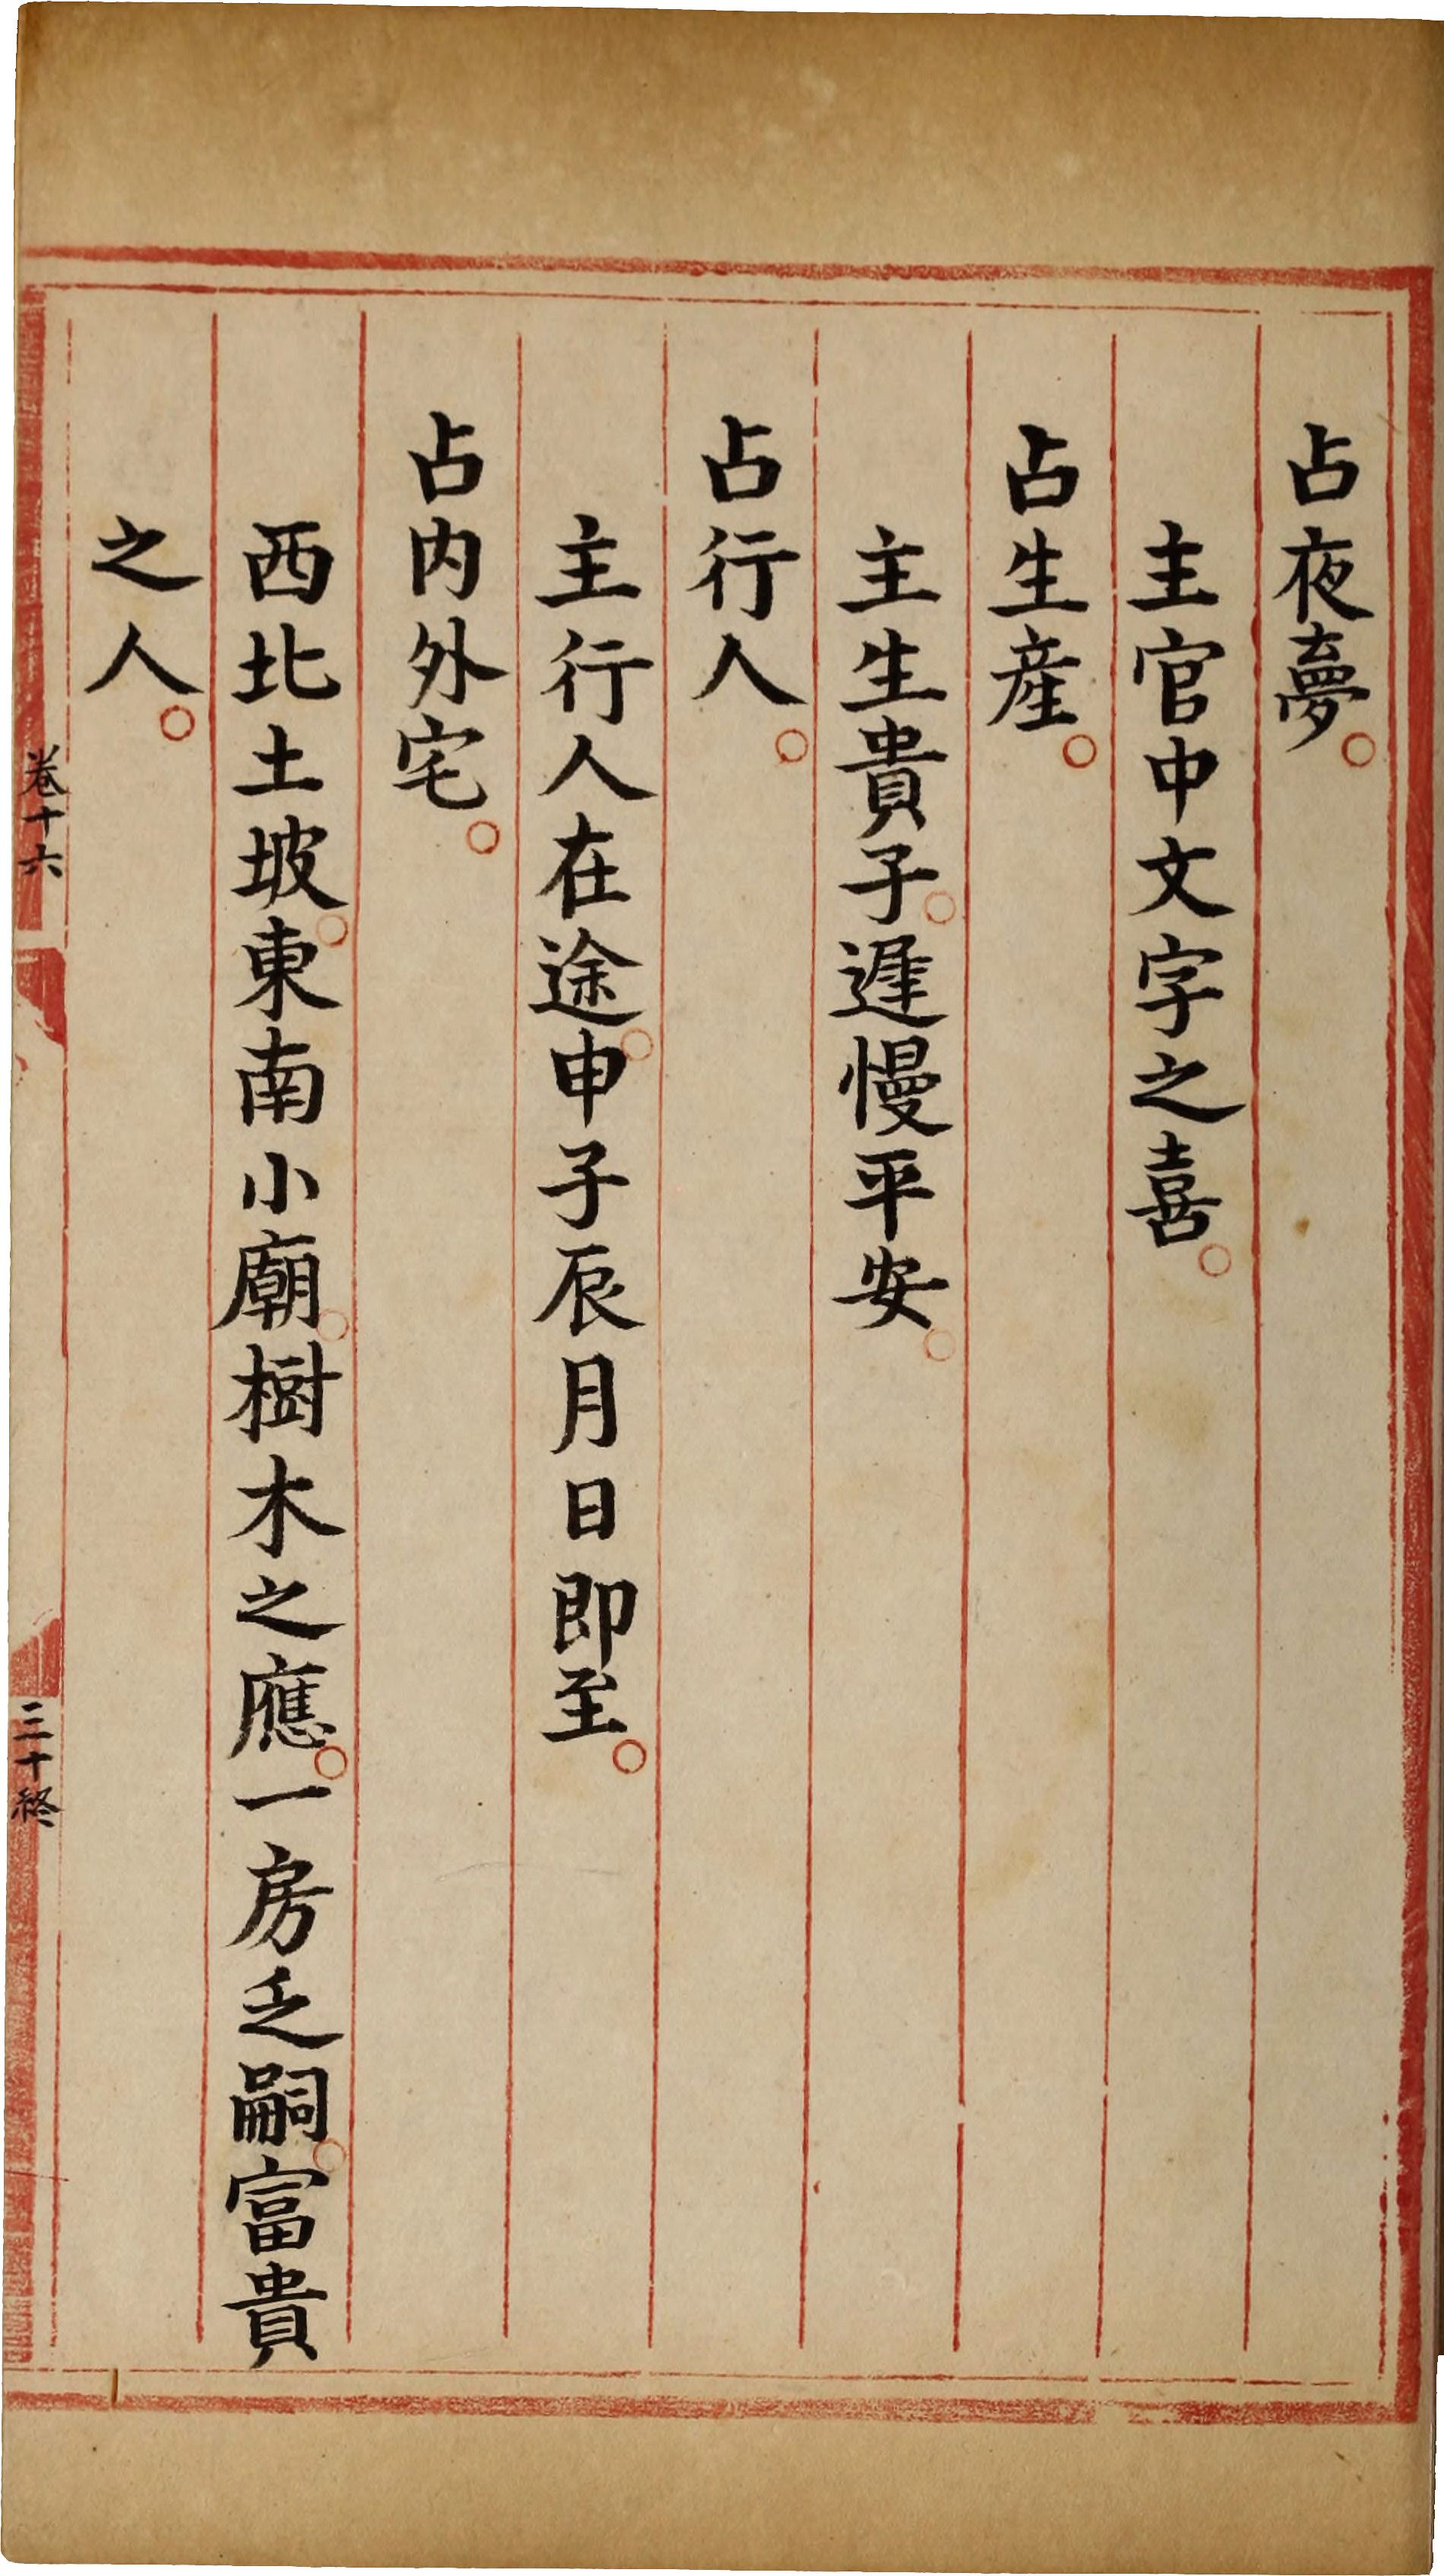 占夜夢。
主官中文字之喜。
占生産。
主生貴子。遲慢平安。
占行人。
主行人在途。申子辰月日即至。
占内外宅。
西北土坡。東南小廟。樹木之應。一房乏嗣。富貴
之人。
卷十六
三十終